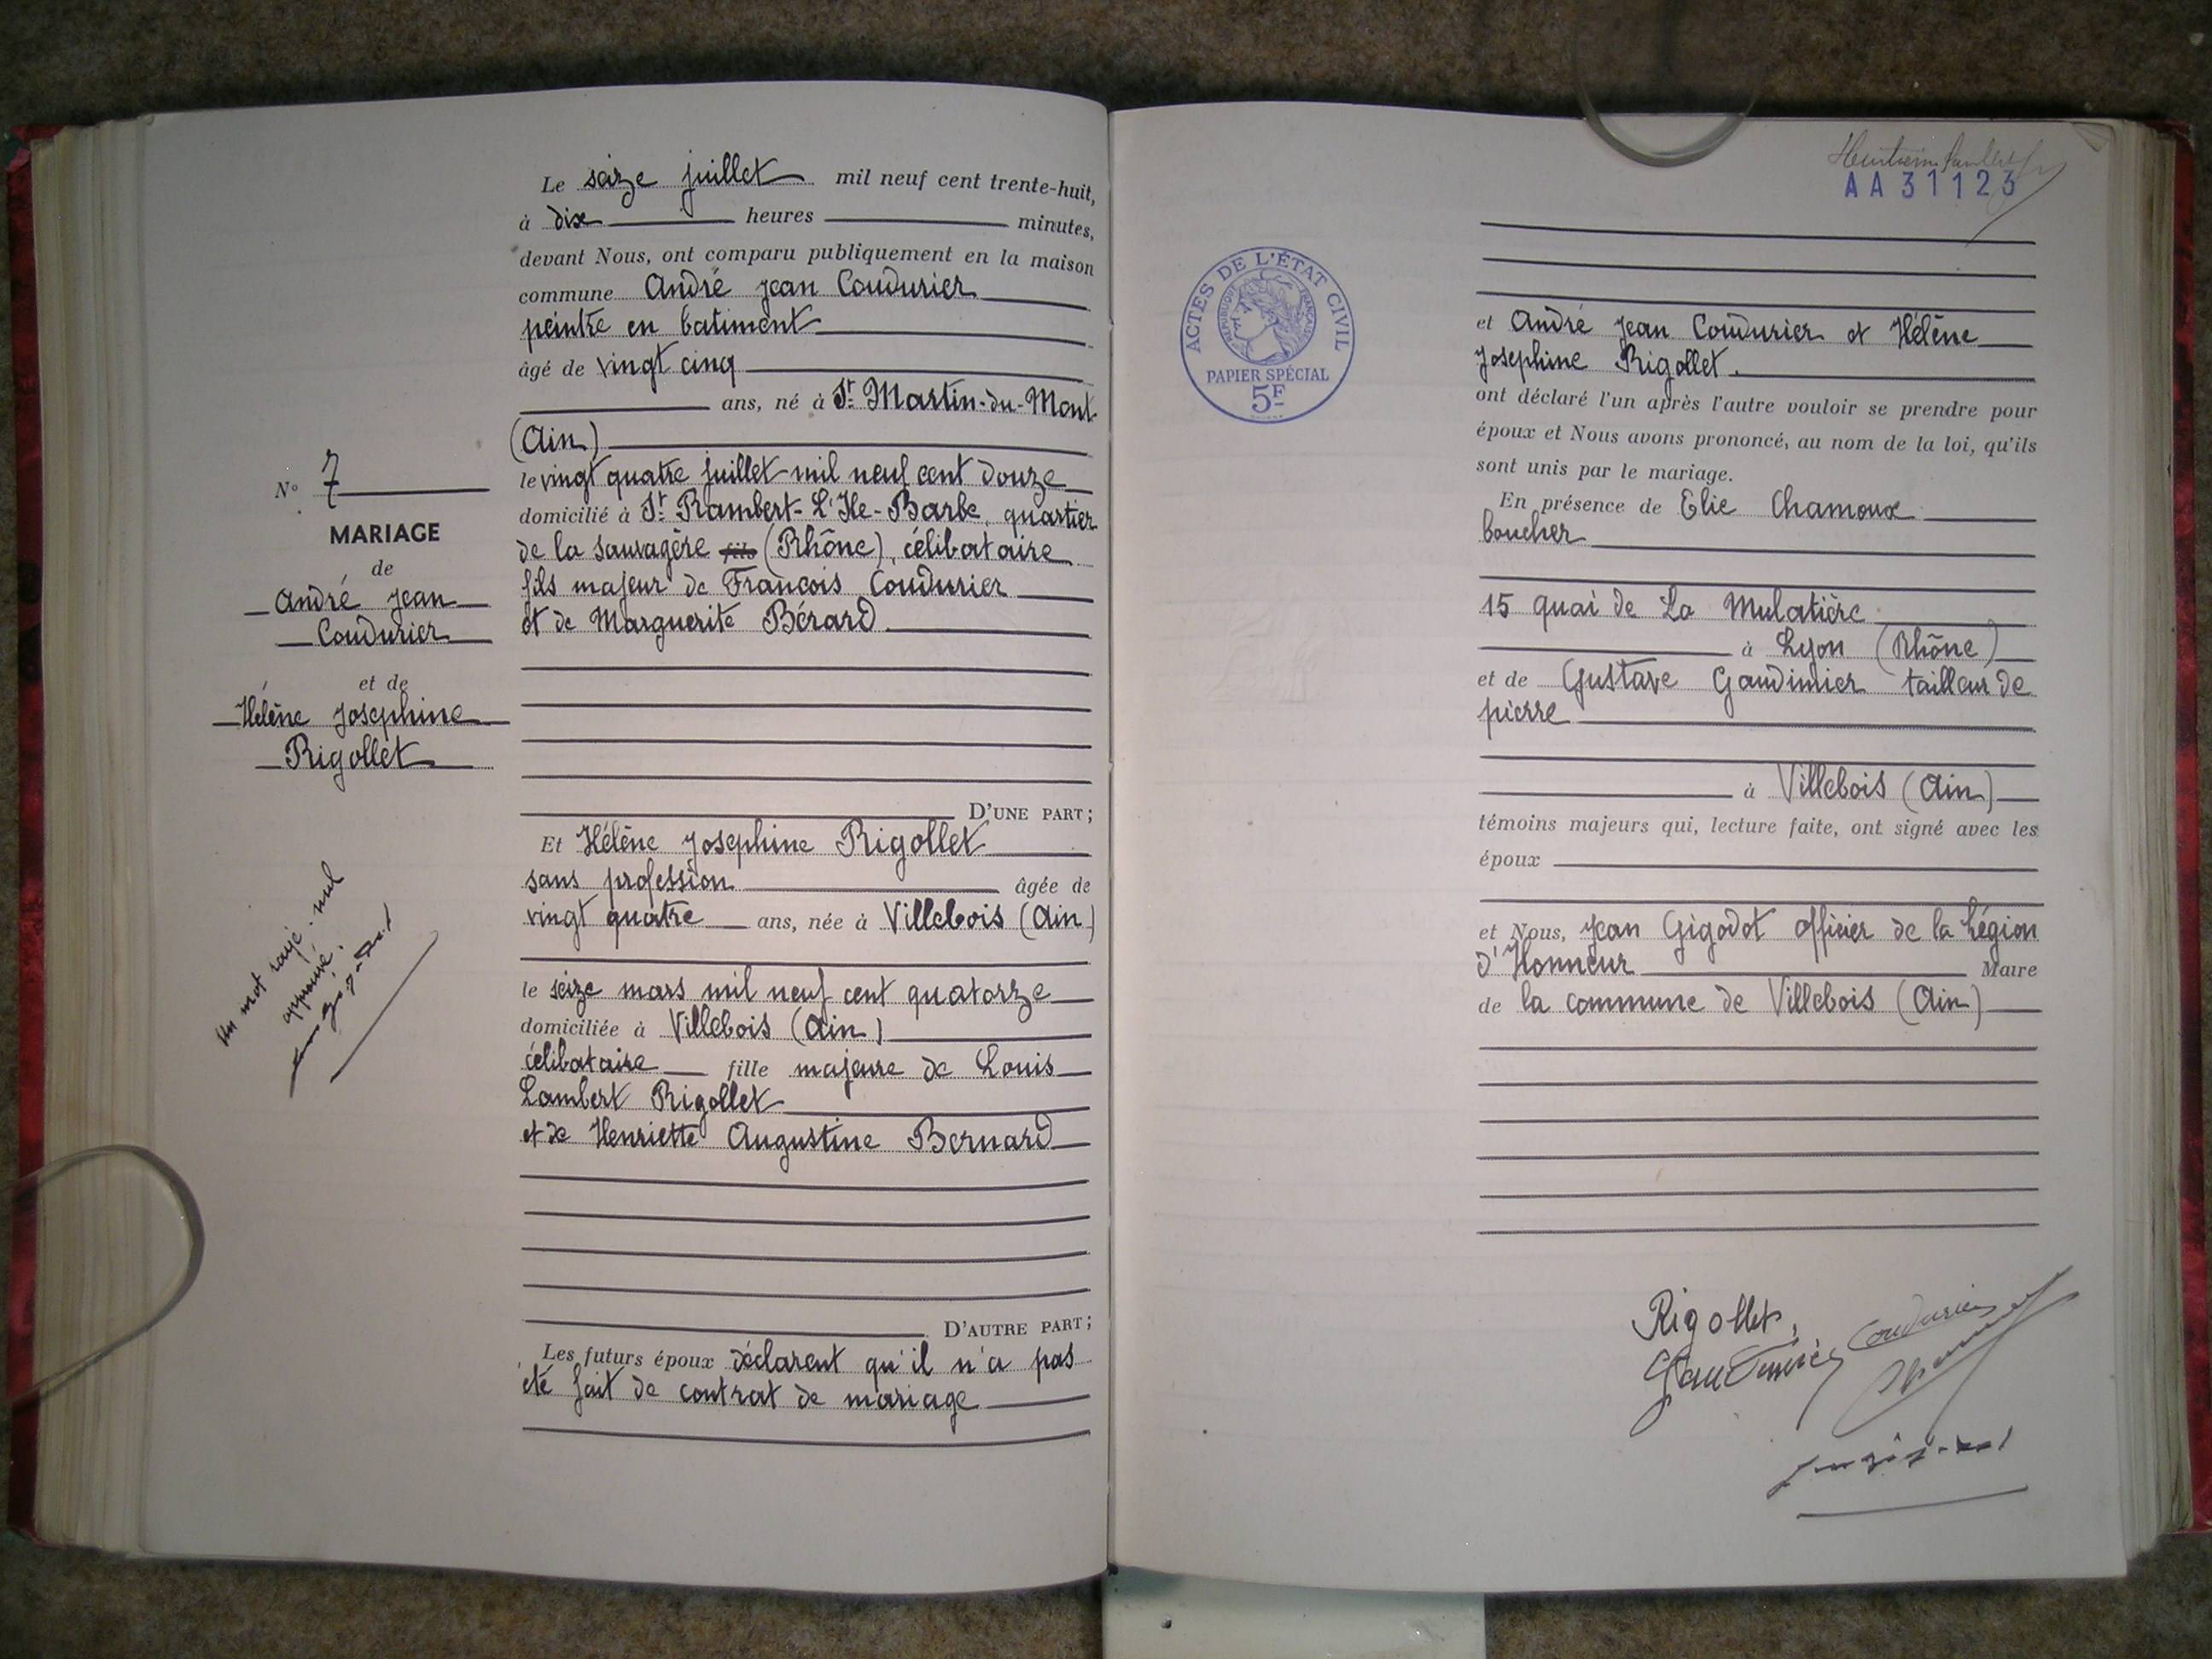 Le seize juillet mil neuf cent trente-huit,
à dix heures minutes,
devant Nous, ont comparu publiquement en la maison
commune André Jean Coudurier
peintre en batiment
âgé de vingt cinq
ans, né à St Martin-du-Mont
(Ain)
le vingt quatre juillet mil neuf cent douze
domicilié à St Rambert-L'Ile-Barbe, quartier
de la Sauvagère fils (Rhône), célibataire
fils majeur de François Coudurier
et de Marguerite Bérard
D'UNE PART;
Et Hélène Josephine Rigollet
sans profession âgée de
vingt quatre ans, née à Villebois (Ain)
le seize mars mil neuf cent quatorze
domiciliée à Villebois (Ain)
célibataire fille majeure de Louis
Lambert Rigollet
et de Henriette Augustine Bernard
D'AUTRE PART;
Les futurs époux déclarent qu'il n'a pas
été fait de contrat de mariage
N° 7
MARIAGE
de
André Jean
Coudurier
et de
Hélène Josephine
Rigollet
Un mot rayé nul
approuvé.
AA31123
ACTES DE L'ÉTAT CIVIL
RÉPUBLIQUE FRANÇAISE
PAPIER SPÉCIAL
5F
et André Jean Coudurier et Hélène
Josephine Rigollet.
ont déclaré l'un après l'autre vouloir se prendre pour
époux et Nous avons prononcé, au nom de la loi, qu'ils
sont unis par le mariage.
En présence de Elie Chamoux
boucher
15 quai de La Mulatière
à Lyon (Rhône)
et de Gustave Gaudimier tailleur de
pierre
à Villebois (Ain)
témoins majeurs qui, lecture faite, ont signé avec les
époux
et Nous, Jean Gigodot officier de la Légion
d'Honneur Maire
de la commune de Villebois (Ain)
Rigollet
Coudurier